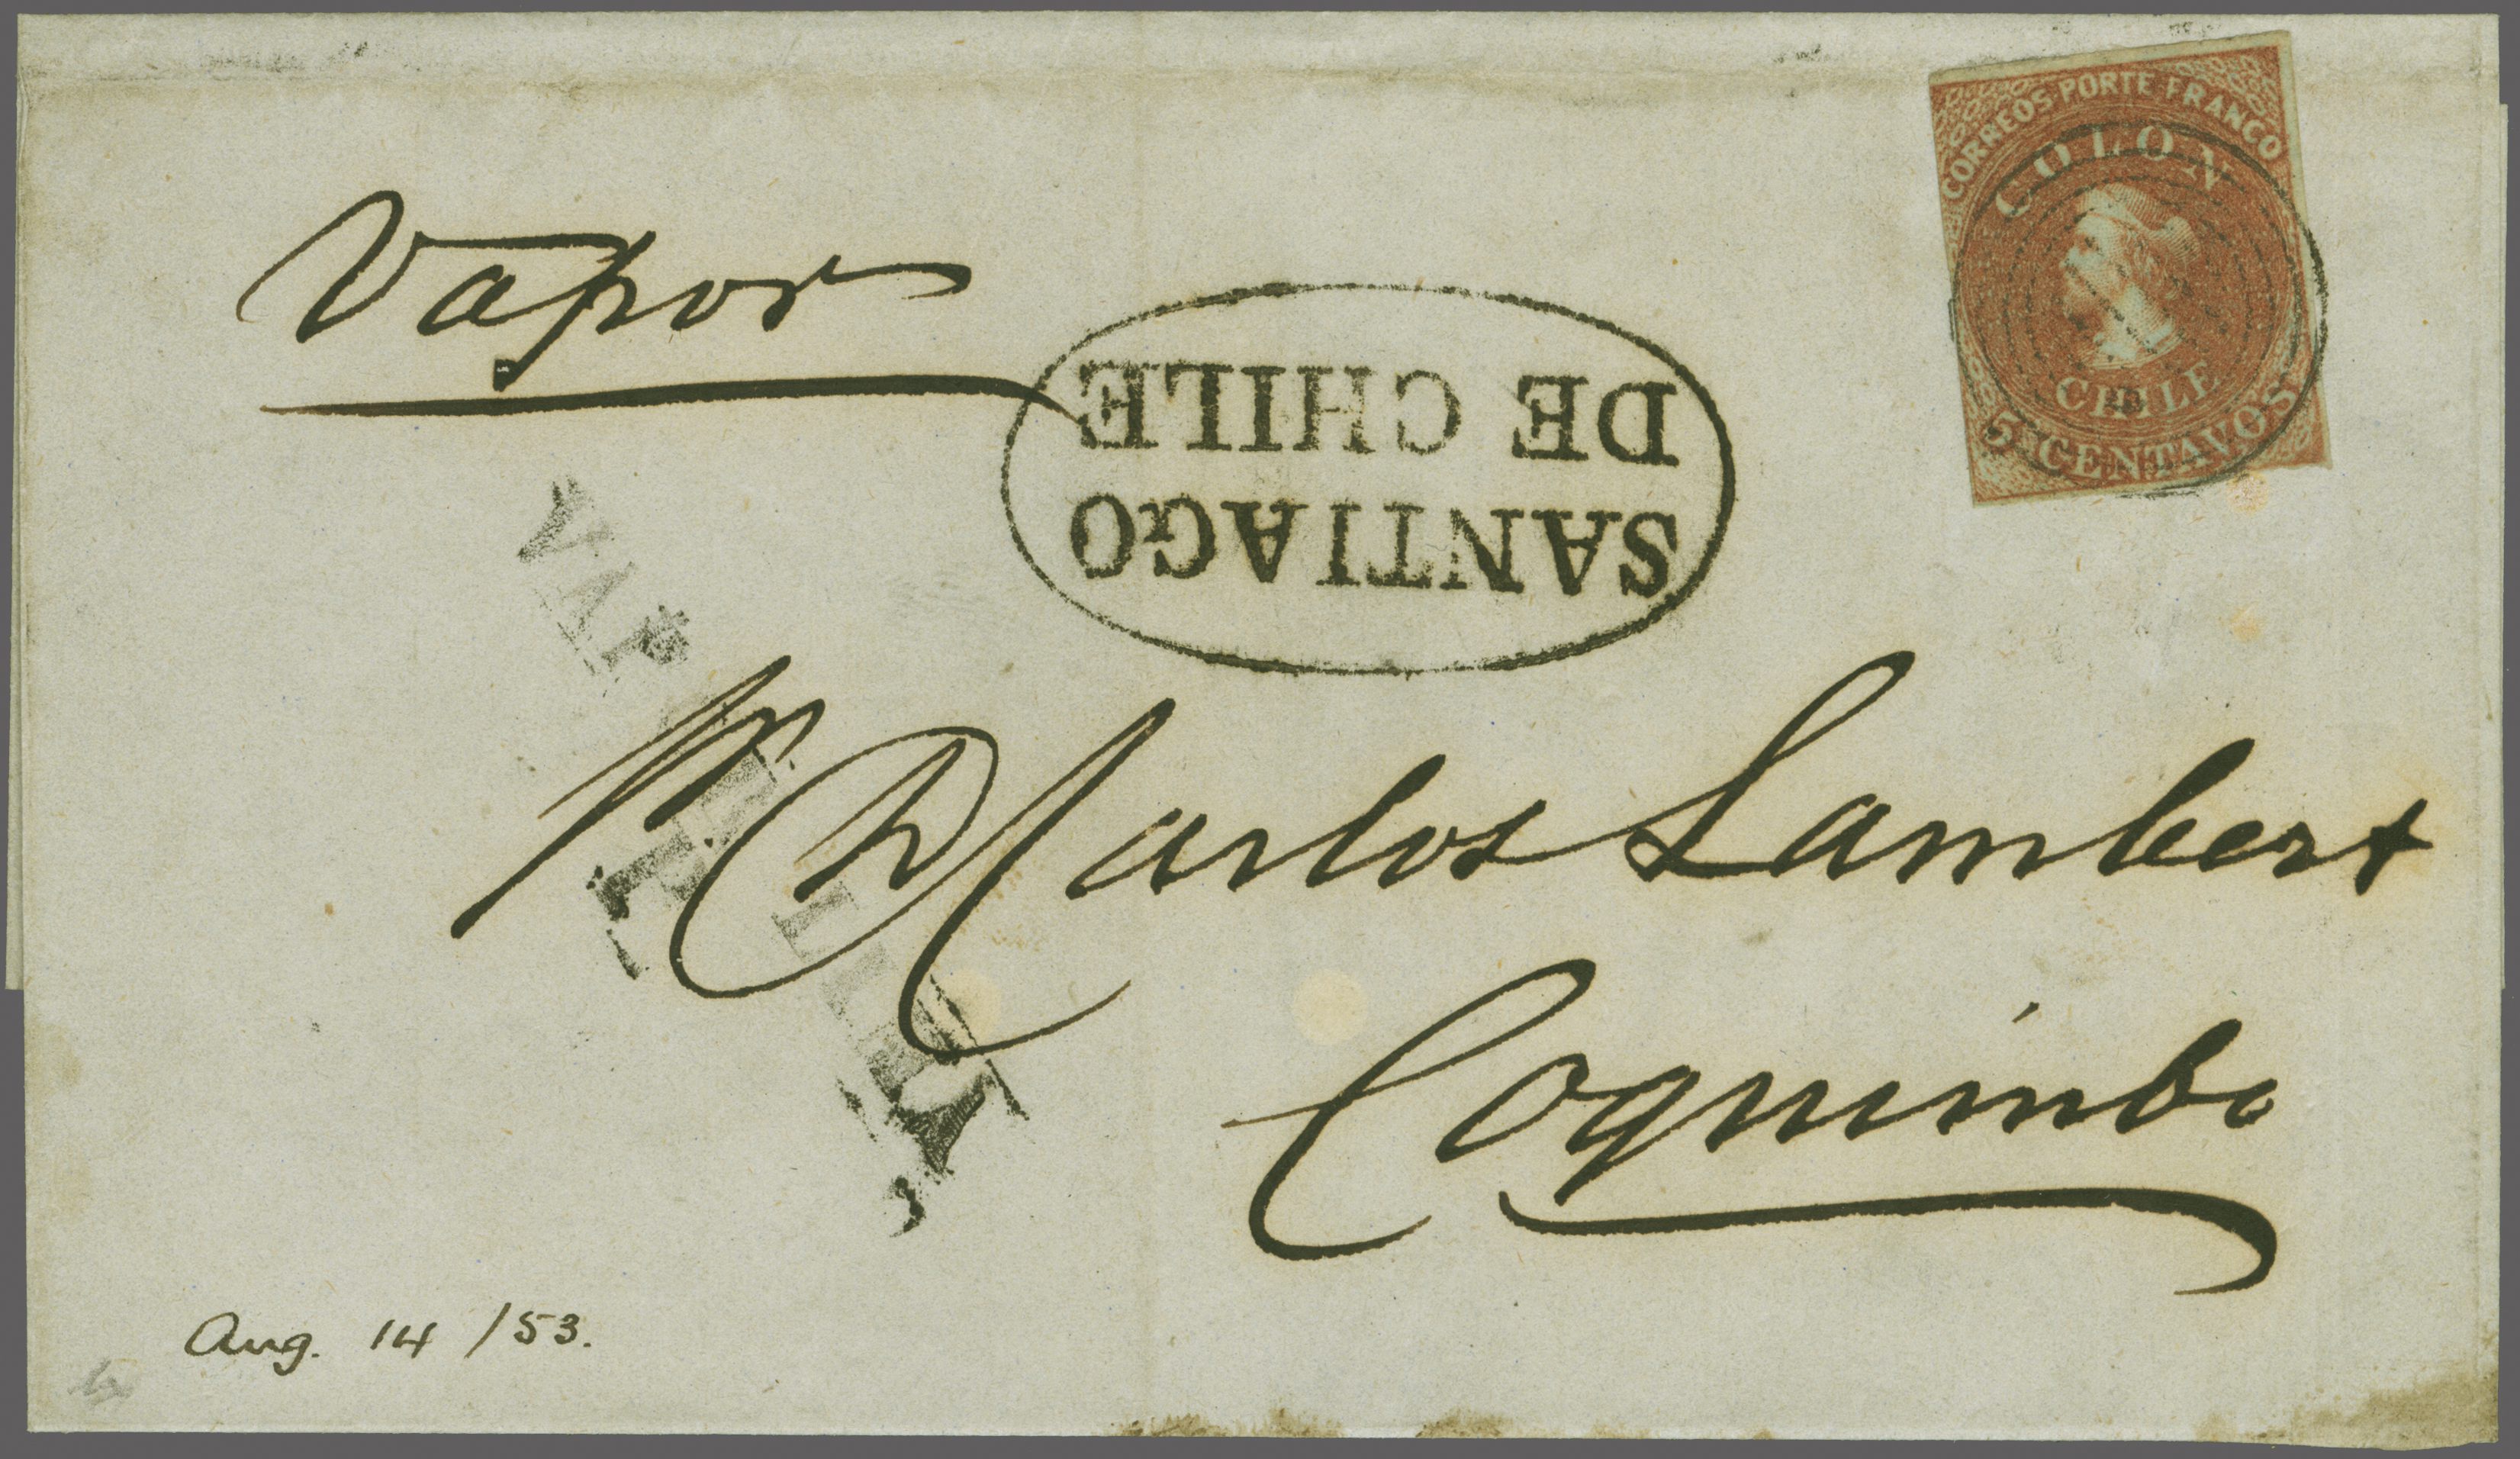 CORREOS PORTE FRANCO
COLON
CHILE
5 CENTAVOS
Vapor
SANTIAGO
DE CHILE
VAP
Carlos Lambert
Coquimbo
Aug. 14 /53.